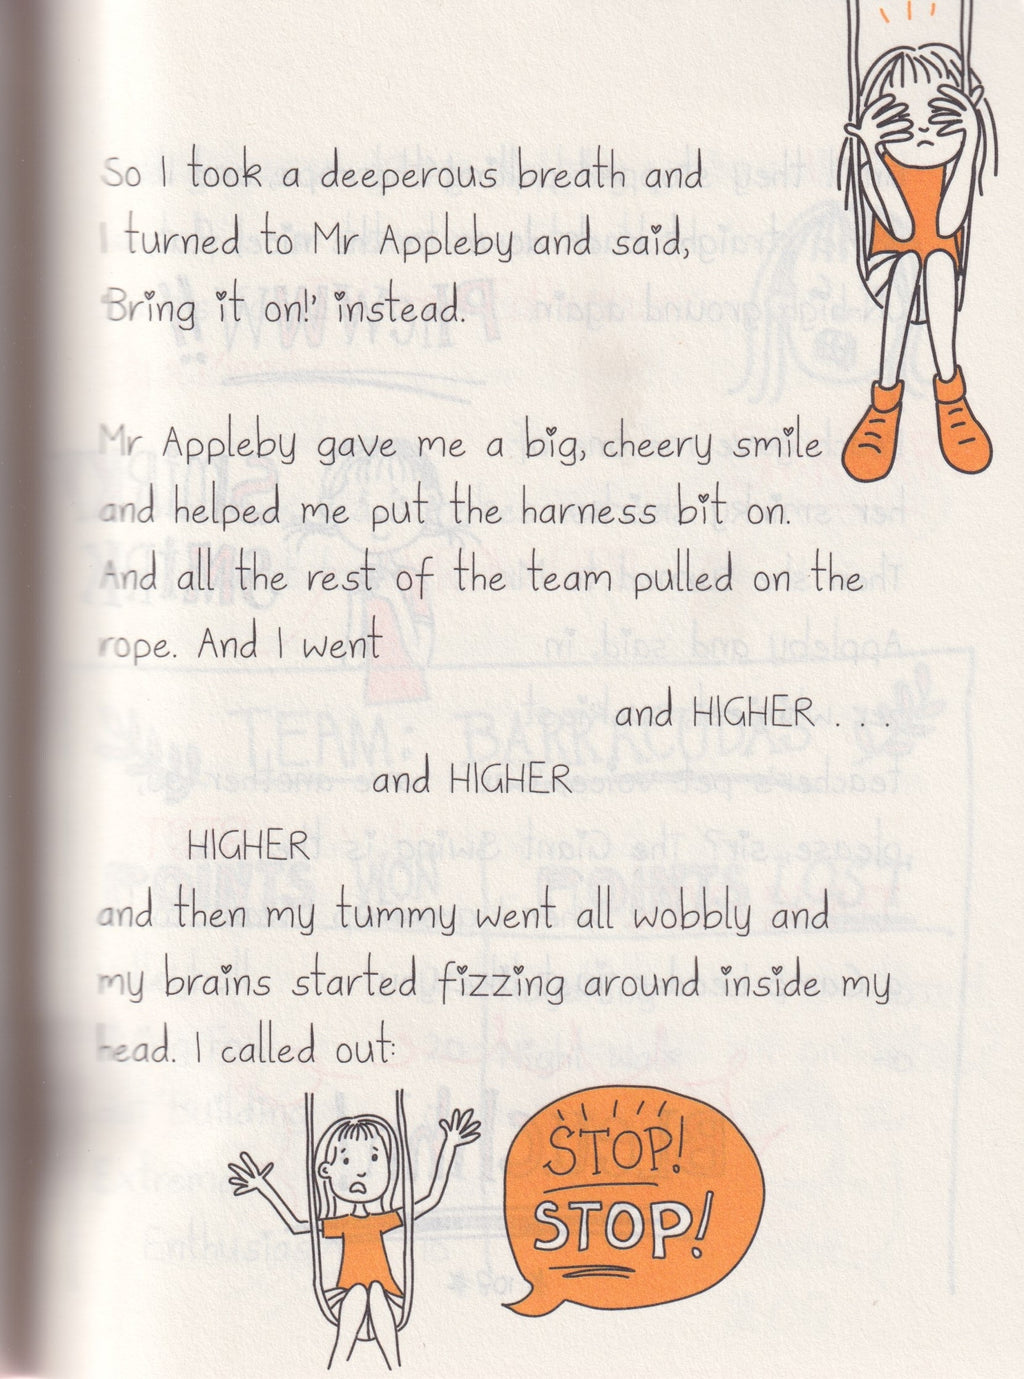 So I took a deeperous breath and
I turned to Mr Appleby and said,
'Bring it on!' instead.
Mr Appleby gave me a big, cheery smile
and helped me put the harness bit on.
And all the rest of the team pulled on the
rope. And I went
and HIGHER . . .
and HIGHER
HIGHER
and then my tummy went all wobbly and
my brains started fizzing around inside my
head. I called out:
STOP!
STOP!